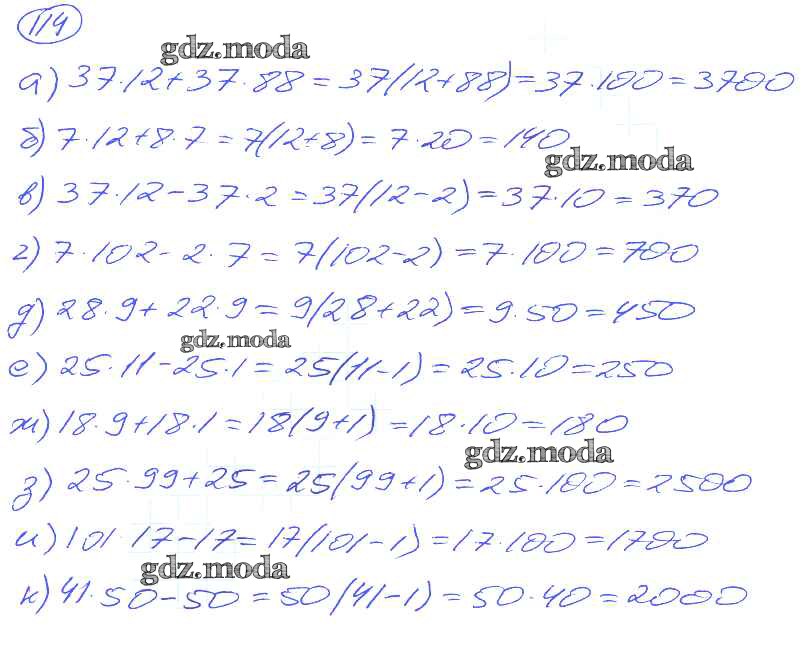 114
gdz.moda
а) 37·12+37·88=37(12+88)=37·100=3700
б) 7·12+8·7=7(12+8)=7·20=140
gdz.moda
в) 37·12-37·2=37(12-2)=37·10=370
г) 7·102-2·7=7(102-2)=7·100=700
д) 28·9+22·9=9(28+22)=9·50=450
gdz.moda
е) 25·11-25·1=25(11-1)=25·10=250
ж) 18·9+18·1=18(9+1)=18·10=180
gdz.moda
з) 25·99+25=25(99+1)=25·100=2500
и) 101·17-17=17(101-1)=17·100=1700
gdz.moda
к) 41·50-50=50(41-1)=50·40=2000